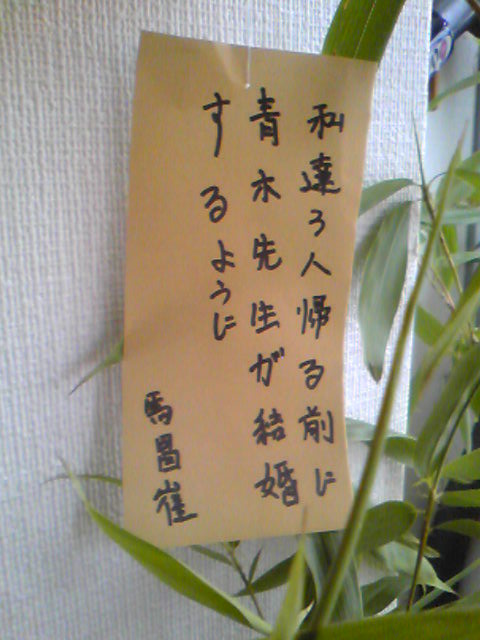 私達3人帰る前に
青木先生が結婚
するように
馬昌崔